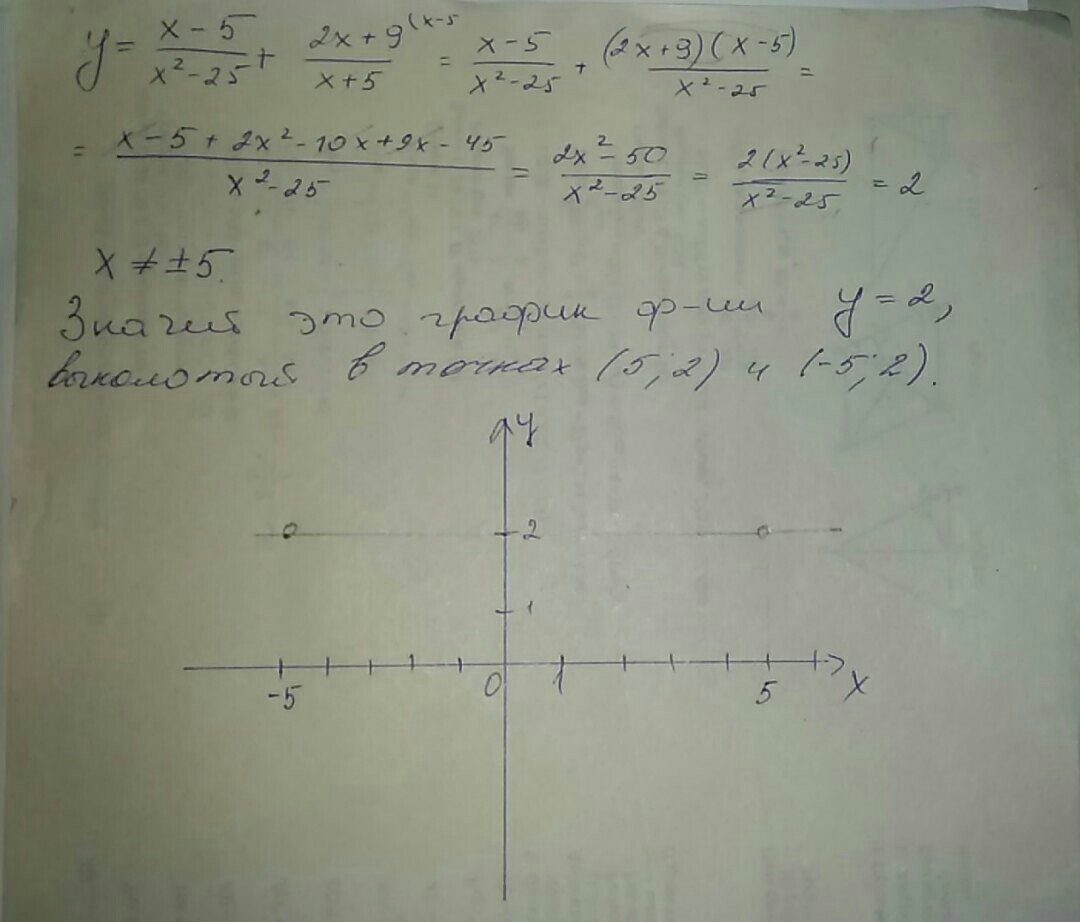 y = (x-5)/(x²-25) + (2x+9)/(x+5) ⁽ˣ⁻⁵ = (x-5)/(x²-25) + (2x+9)(x-5)/(x²-25) =
= (x-5+2x²-10x+9x-45)/(x²-25) = (2x²-50)/(x²-25) = 2(x²-25)/(x²-25) = 2
x ≠ ±5.
Значит это график ф-ии y = 2,
выколотый в точках (5;2) и (-5;2).
y
2
1
-5 0 1 5 x